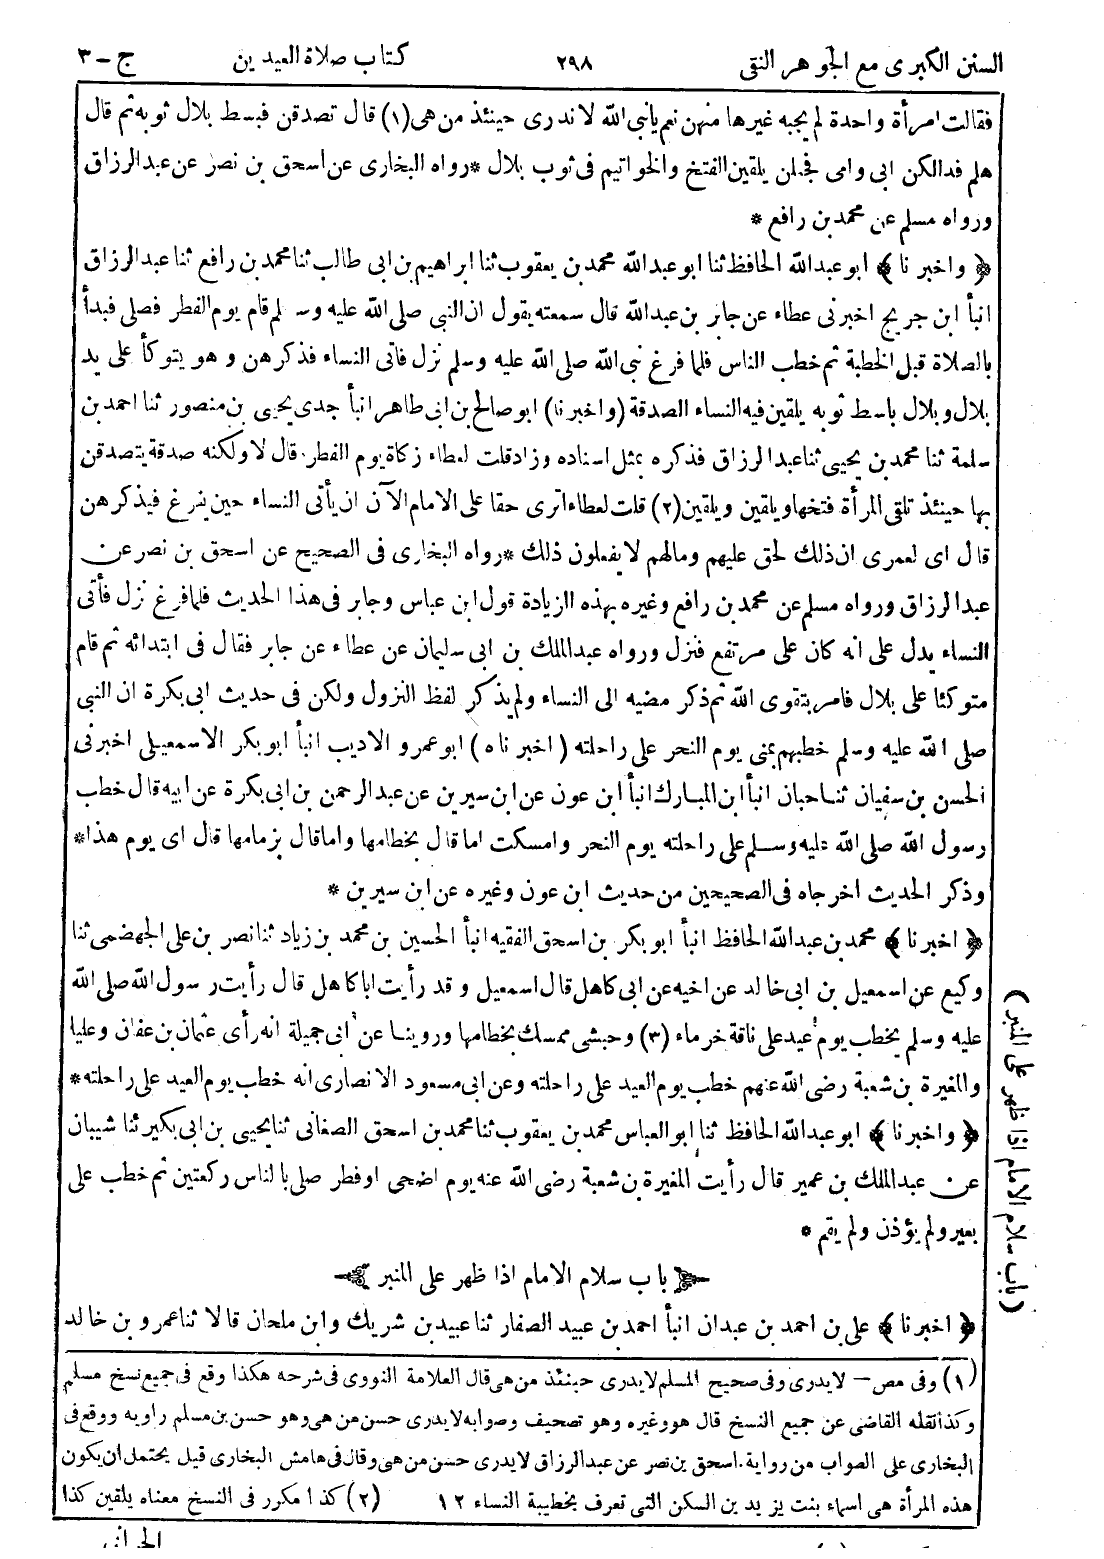 السنن الكبرى مع الجوهر النقى ٢٩٨ كتاب صلاة العيدين ج-٣
فقالت امرأة واحدة لم يجبه غيرها منهن نعم يا نبى الله لا ندرى حينئذ من هى (١) قال تصدقن فبسط بلال ثوبه ثم قال
هلم فدالكن ابى وامى فجعلن يلقين الفتخ والخواتيم فى ثوب بلال * رواه البخارى عن اسحق بن نصر عن عبد الرزاق
ورواه مسلم عن محمد بن رافع *
﴿ واخبرنا ﴾ ابو عبد الله الحافظ ثنا ابو عبد الله محمد بن يعقوب ثنا ابراهيم بن ابى طالب ثنا محمد بن رافع ثنا عبد الرزاق
انبأ ابن جريج اخبرنى عطاء عن جابر بن عبد الله قال سمعته يقول ان النبى صلى الله عليه وسلم قام يوم الفطر فصلى فبدأ
بالصلاة قبل الخطبة ثم خطب الناس فلما فرغ نبى الله صلى الله عليه وسلم نزل فاتى النساء فذكرهن وهو يتوكأ على يد
بلال وبلال باسط ثوبه يلقين فيه النساء الصدقة (واخبرنا) ابو صالح بن ابى طاهر انبأ جدى يحيى بن منصور ثنا احمد بن
سلمة ثنا محمد بن يحيى ثنا عبد الرزاق فذكره بمثل اسناده وزاد قلت لعطاء زكاة يوم الفطر قال لا ولكنه صدقة يتصدقن
بها حينئذ تلقى المرأة فتخها ويلقين ويلقين (٢) قلت لعطاء اترى حقا على الامام الآن ان يأتى النساء حين يفرغ فيذكرهن
قال اى لعمرى ان ذلك لحق عليهم ومالهم لا يفعلون ذلك * رواه البخارى فى الصحيح عن اسحق بن نصر عن
عبد الرزاق ورواه مسلم عن محمد بن رافع وغيره بهذه الزيادة قول ابن عباس وجابر فى هذا الحديث فلما فرغ نزل فأتى
النساء يدل على انه كان على مرتفع فنزل ورواه عبد الملك بن ابى سليمان عن عطاء عن جابر فقال فى ابتدائه ثم قام
متوكئا على بلال فامر بتقوى الله ثم ذكر مضيه الى النساء ولم يذكر لفظ النزول ولكن فى حديث ابى بكرة ان النبى
صلى الله عليه وسلم خطبهم بمنى يوم النحر على راحلته (اخبرناه) ابو عمرو الاديب انبأ ابو بكر الاسمعيلى اخبرنى
الحسن بن سفيان ثنا حبان انبأ ابن المبارك انبأ ابن عون عن ابن سيرين عن عبد الرحمن بن ابى بكرة عن ابيه قال خطب
رسول الله صلى الله عليه وسلم على راحلته يوم النحر وامسكت اما قال بخطامها واما قال بزمامها قال اى يوم هذا *
وذكر الحديث اخرجاه فى الصحيحين من حديث ابن عون وغيره عن ابن سيرين *
﴿ اخبرنا ﴾ محمد بن عبد الله الحافظ انبأ ابو بكر بن اسحق الفقيه انبأ الحسين بن محمد بن زياد ثنا نصر بن على الجهضمى ثنا
وكيع عن اسمعيل بن ابى خالد عن اخيه عن ابى كاهل قال اسمعيل وقد رأيت ابا كاهل قال رأيت رسول الله صلى الله
عليه وسلم يخطب يوم عيد على ناقة خرماء (٣) وحبشى ممسك بخطامها وروينا عن ابى جميلة انه رأى عثمان بن عفان وعليا
والمغيرة بن شعبة رضى الله عنهم خطب يوم العيد على راحلته وعن ابى مسعود الانصارى انه خطب يوم العيد على راحلته *
﴿ واخبرنا ﴾ ابو عبد الله الحافظ ثنا ابو العباس محمد بن يعقوب ثنا محمد بن اسحق الصغانى ثنا يحيى بن ابى بكير ثنا شيبان
عن عبد الملك بن عمير قال رأيت المغيرة بن شعبة رضى الله عنه يوم اضحى او فطر صلى بالناس ركعتين ثم خطب على
بعير ولم يؤذن ولم يقم *
باب سلام الامام اذا ظهر على المنبر
﴿ اخبرنا ﴾ على بن احمد بن عبدان انبأ احمد بن عبيد الصفار ثنا عبيد بن شريك وابن ملحان قالا ثنا عمرو بن خالد
(باب سلام الامام اذا ظهر على المنبر)
(١) وفى مص – لا يدرى وفى صحيح المسلم لا يدرى حينئذ من هى قال العلامة النووى فى شرحه هكذا وقع فى جميع نسخ مسلم
وكذا نقله القاضى عن جميع النسخ قال هو وغيره وهو تصحيف وصوابه لا يدرى حسن من هى وهو حسن بن مسلم راويه ووقع فى
البخارى على الصواب من رواية اسحق بن نصر عن عبد الرزاق لا يدرى حسن من هى وقال فى هامش البخارى قيل يحتمل ان يكون
هذه المرأة هى اسماء بنت يزيد بن السكن التى تعرف بخطيبة النساء ١٢ (٢) كذا مكرر فى النسخ معناه يلقين كذا